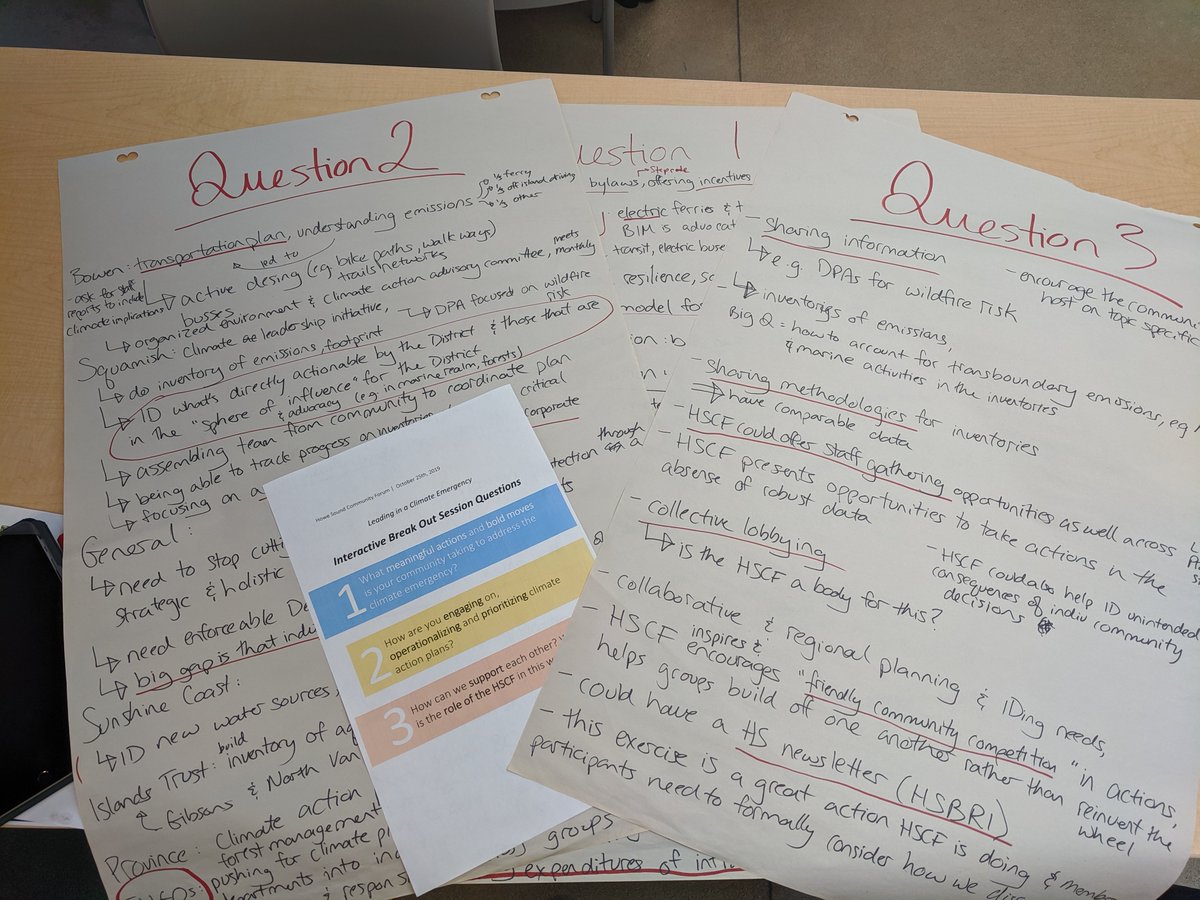 Question 2
Bowen: transportation plan, understanding emissions
⅓ ferry
⅓ off island driving
⅓ other
led to
- ask for staff reports to include climate implications
↳ active desing (eg bike paths, walk ways)
busses trails networks
↳ organized environment & climate action advisory committee, meets monthly
Squamish: Climate leadership initiative, ↳ DPA focused on wildfire risk
↳ do inventory of emissions, footprint
↳ ID what's directly actionable by the District & those that are
in the "sphere of influence" for the District
& advocacy (eg in marine realm, forests)
↳ assembling team from community to coordinate plan
↳ being able to track progress on inventories critical
↳ focusing on a corporate
General:
↳ need to stop cutt
strategic & holistic
↳ need enforceable De
↳ big gap is that indu
Sunshine Coast:
↳ ID new water sources,
Islands Trust: build inventory of aq
Gibsons & North Van
Province: Climate action
forest management
pushing for climate pl
partments into in
& respons
uestion 1
Step code
bylaws, offering incentives
electric ferries & t
BIM is advocat
transit, electric buse
resilience, sc
model fo
ion: b
tection through a
groups
expenditures of int
Howe Sound Community Forum | October 25th, 2019
Leading in a Climate Emergency
Interactive Break Out Session Questions
1 What meaningful actions and bold moves
is your community taking to address the
climate emergency?
2 How are you engaging on,
operationalizing and prioritizing climate
action plans?
3 How can we support each other?
is the role of the HSCF in this w
Question 3
- Sharing information
↳ e.g. DPAs for wildfire risk
- encourage the communi
host on topic specific
- ↳ inventories of emissions,
Big Q = how to account for transboundary emissions, eg
& marine activities in the inventories
- Sharing methodologies for inventories
⇒ have comparable data
- HSCF could offer staff gathering opportunities as well across
- HSCF presents opportunities to take actions in the
absense of robust data
- collective lobbying
↳ is the HSCF a body for this?
- HSCF could also help ID unintended
consequences of indiv community
decisions
- collaborative & regional planning & IDing needs,
- HSCF inspires & encourages "friendly community competition" in actions,
helps groups build off one another rather than reinvent the
wheel
- could have a HS newsletter (HSBRI)
- this exercise is a great action HSCF is doing & membe
participants need to formally consider how we